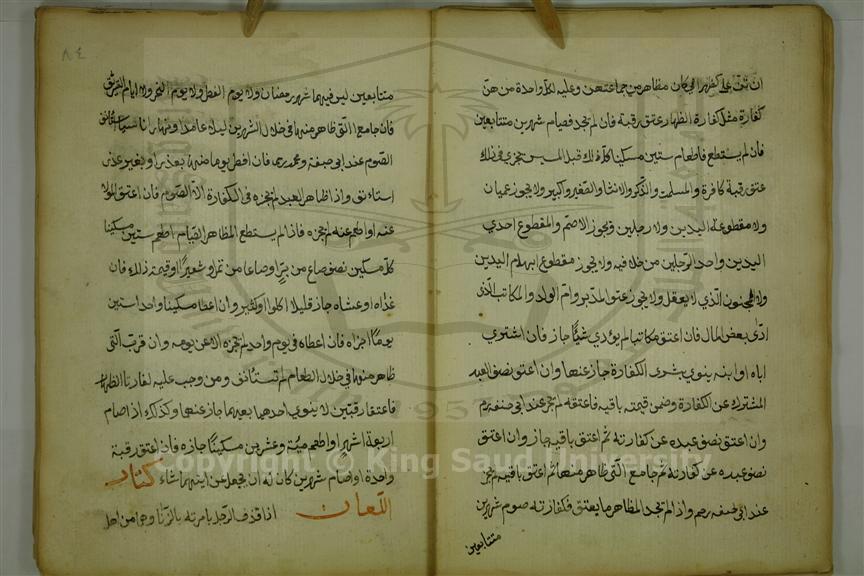 ان تبقى على كفرها في كان مظاهر من جماعتهن وعليه لكل واحدة من هن
كفارة مثل كفارة الظهار عتق رقبة فان لم تجد فصيام شهرين متتابعين
فان لم يستطع فاطعام ستين مسكينا كل ذلك قبل المسيس يجزي في ذلك
عتق رقبة كافرة والمسلمة والذكر والانثا والصغير وكبير ولا يجوز عميان
ولا مقطوعة اليدين ولا رجلين ويجوز الاصم والمقطوع احدي
اليدين واحد الرجلين من خلاف ولا يجوز مقطوع ابهام اليدين
ولا المجنون الذي لا يعقل ولا يجوز عتق المدبر وام الولد والمكاتب الذي
ادى بعض المال فان اعتق مكاتبا لم يؤدي شيئا جاز فان اشترى
اباه او ابنه ينوي بشرى الكفارة جاز عنها وان اعتق نصف العبد
المشترك عن الكفارة وضمن قيمته باقيه فاعتقه لم يجز عند ابي حنيفة رحم
وان اعتق نصف عبده عن كفارته ثم اعتق باقيه جاز وان اعتق
نصف عبده عن كفارته ثم جامع التي ظاهر منها ثم اعتق باقيه لم يجز
عند ابي حنيفه رحم واذا لم تجد المظاهر ما يعتق فكفارته صوم شهرين
متتابعين
٨٤
متتابعين ليس فيهما شهر رمضان ولا يوم الفطر ولا يوم النحر ولا ايام التشريق
فان جامع التي ظاهر منها في خلال الشهرين ليلا عامدا او نهارا ناسيا استانف
الصوم عند ابي حنيفة ومحمد رحم فان افطر يوما منها بعذر او بغير عذر
استانف واذا ظاهر العبد لم يجزه في الكفارة الا الصوم فان اعتق المولا
عنه او اطعم عنه لم يجزه فاذا لم يستطع المظاهر القيام اطعم ستين مسكينا
كل مسكين نصف صاع من بر او صاعا من تمر او شعيرا او قيمته ذلك فان
غداه او عشاه جاز قليلا اكلوا او كثير وان اعطا مسكينا واحدا ستين
يوما اجزاه فان اعطاه في يوم واحد لم يجزه الا عن يومه وان قرب التي
ظاهر منها في خلال الطعام لم تستانف ومن وجب عليه كفارتا الظهار
فاعتق رقبتين لا ينوي احدهما بعينها جاز عنها وكذلك اذا صام
اربعة اشهر او اطعم مية وعشرين مسكينا جازه فان اعتق رقبة
واحدة او صام شهرين كان له ان يجعل عن ايتهما شاء كتاب
اللعان اذا قذف الرجل بامرته بالزنا وهما من اهل
Copyright © King Saud University
1957